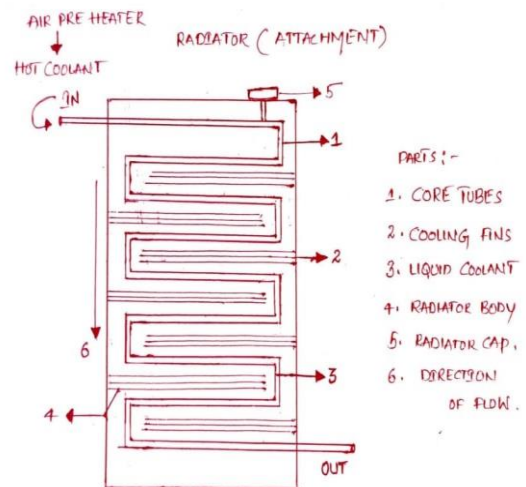 AIR PRE HEATER
RADIATOR (ATTACHMENT)
HOT COOLANT
IN
5
1
2
6
3
4
OUT
PARTS:-
1. CORE TUBES
2. COOLING FINS
3. LIQUID COOLANT
4. RADIATOR BODY
5. RADIATOR CAP.
6. DIRECTION
OF FLOW.